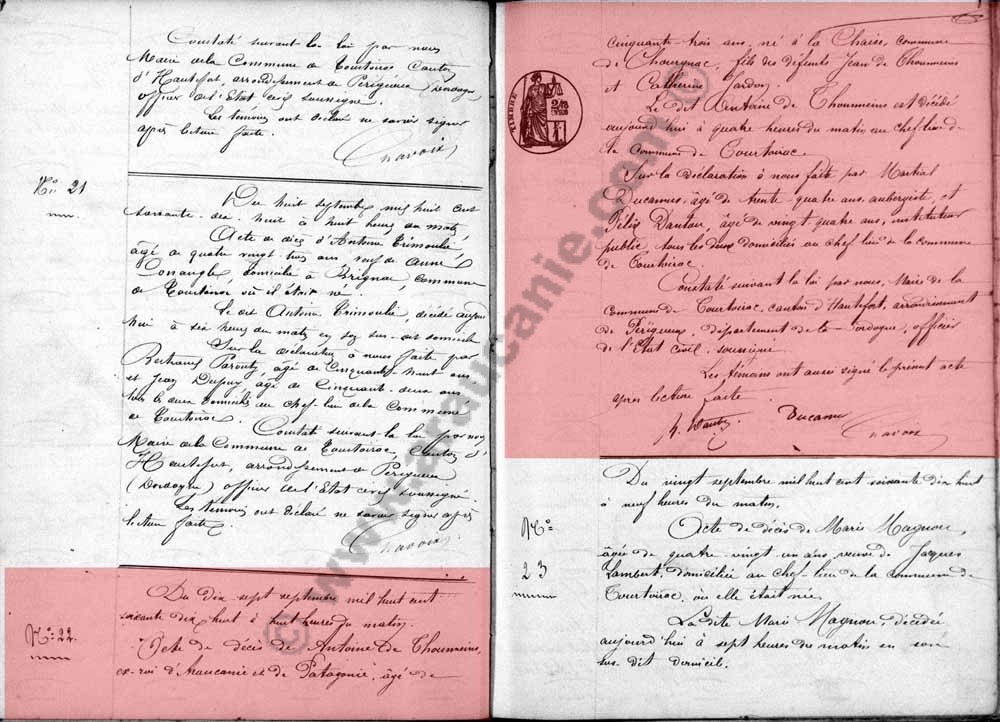 Constaté suivant la loi par nous
Maire de la Commune de Tourtoirac Canton
d'Hautefort, arrondissement de Périgueux (Dordogne)
officier de l'Etat civil soussigné.
Les témoins ont déclaré ne savoir signer
après lecture faite.
Chavoix
N° 21
Du huit septembre mil huit cent
soixante-dix-huit à huit heures du matin,
Acte de décès d'Antoine Trimoulet
âgé de quatre vingt trois ans veuf de Anne
domicilié à Brignac, commune
de Tourtoirac où il était né.
Le dit Antoine Trimoulet, décédé aujourd
hui à six heures du matin en son sus-dit domicile
Sur la déclaration à nous faite par
Bertrand Parouty, âgé de Cinquante-huit ans
et Jean Dupuy âgé de Cinquante-deux ans
tous les deux domiciliés au chef-lieu de la Commune
de Tourtoirac.
Constaté suivant la loi par nous
Maire de la Commune de Tourtoirac, Canton d'
Hautefort, arrondissement de Périgueux
(Dordogne) officier de l'Etat civil soussigné.
Les témoins ont déclaré ne savoir signer après
lecture faite.
Chavoix
N° 22
Du dix sept septembre mil huit cent
soixante dix huit à huit heures du matin.
Acte de décès de Antoine De Thouneins,
ex-roi d'Araucanie et de Patagonie, âgé de
cinquante trois ans, né à la Chaise, commune
de Chourgnac, fils des défunts Jean de Thouneins
et Catherine Jardon.
Le dit Antoine de Thouneins est décédé
aujourd'hui à quatre heures du matin au chef lieu de
la commune de Tourtoirac.
Sur la déclaration à nous faite par Martial
Ducamus, âgé de trente quatre ans, aubergiste, et
Félix Dautou, âgé de vingt quatre ans, instituteur
public, tous les deux domiciliés au chef lieu de la commune
de Tourtoirac.
Constaté suivant la loi par nous, Maire de la
commune de Tourtoirac, canton d'Hautefort, arrondissement
de Périgueux, département de la Dordogne, officier
de l'Etat civil, soussigné.
Les témoins ont aussi signé le présent acte
après lecture faite.
Chavoix
TIMBRE
Du vingt septembre mil huit cent soixante dix huit
à neuf heures du matin.
N°
23
Acte de décès de Marie Magnou,
âgée de quatre-vingt-un ans, veuve de Jacques
Lambert, domiciliée au chef-lieu de la commune de
Tourtoirac, où elle était née.
La dite Marie Magnou décédée
aujourd'hui à sept heures du matin en son
sus dit domicile.
© www.araucanie.com ©